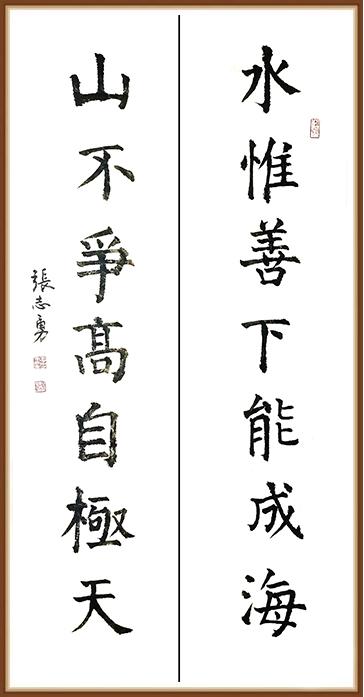 水惟善下能成海
山不爭高自極天
張志勇